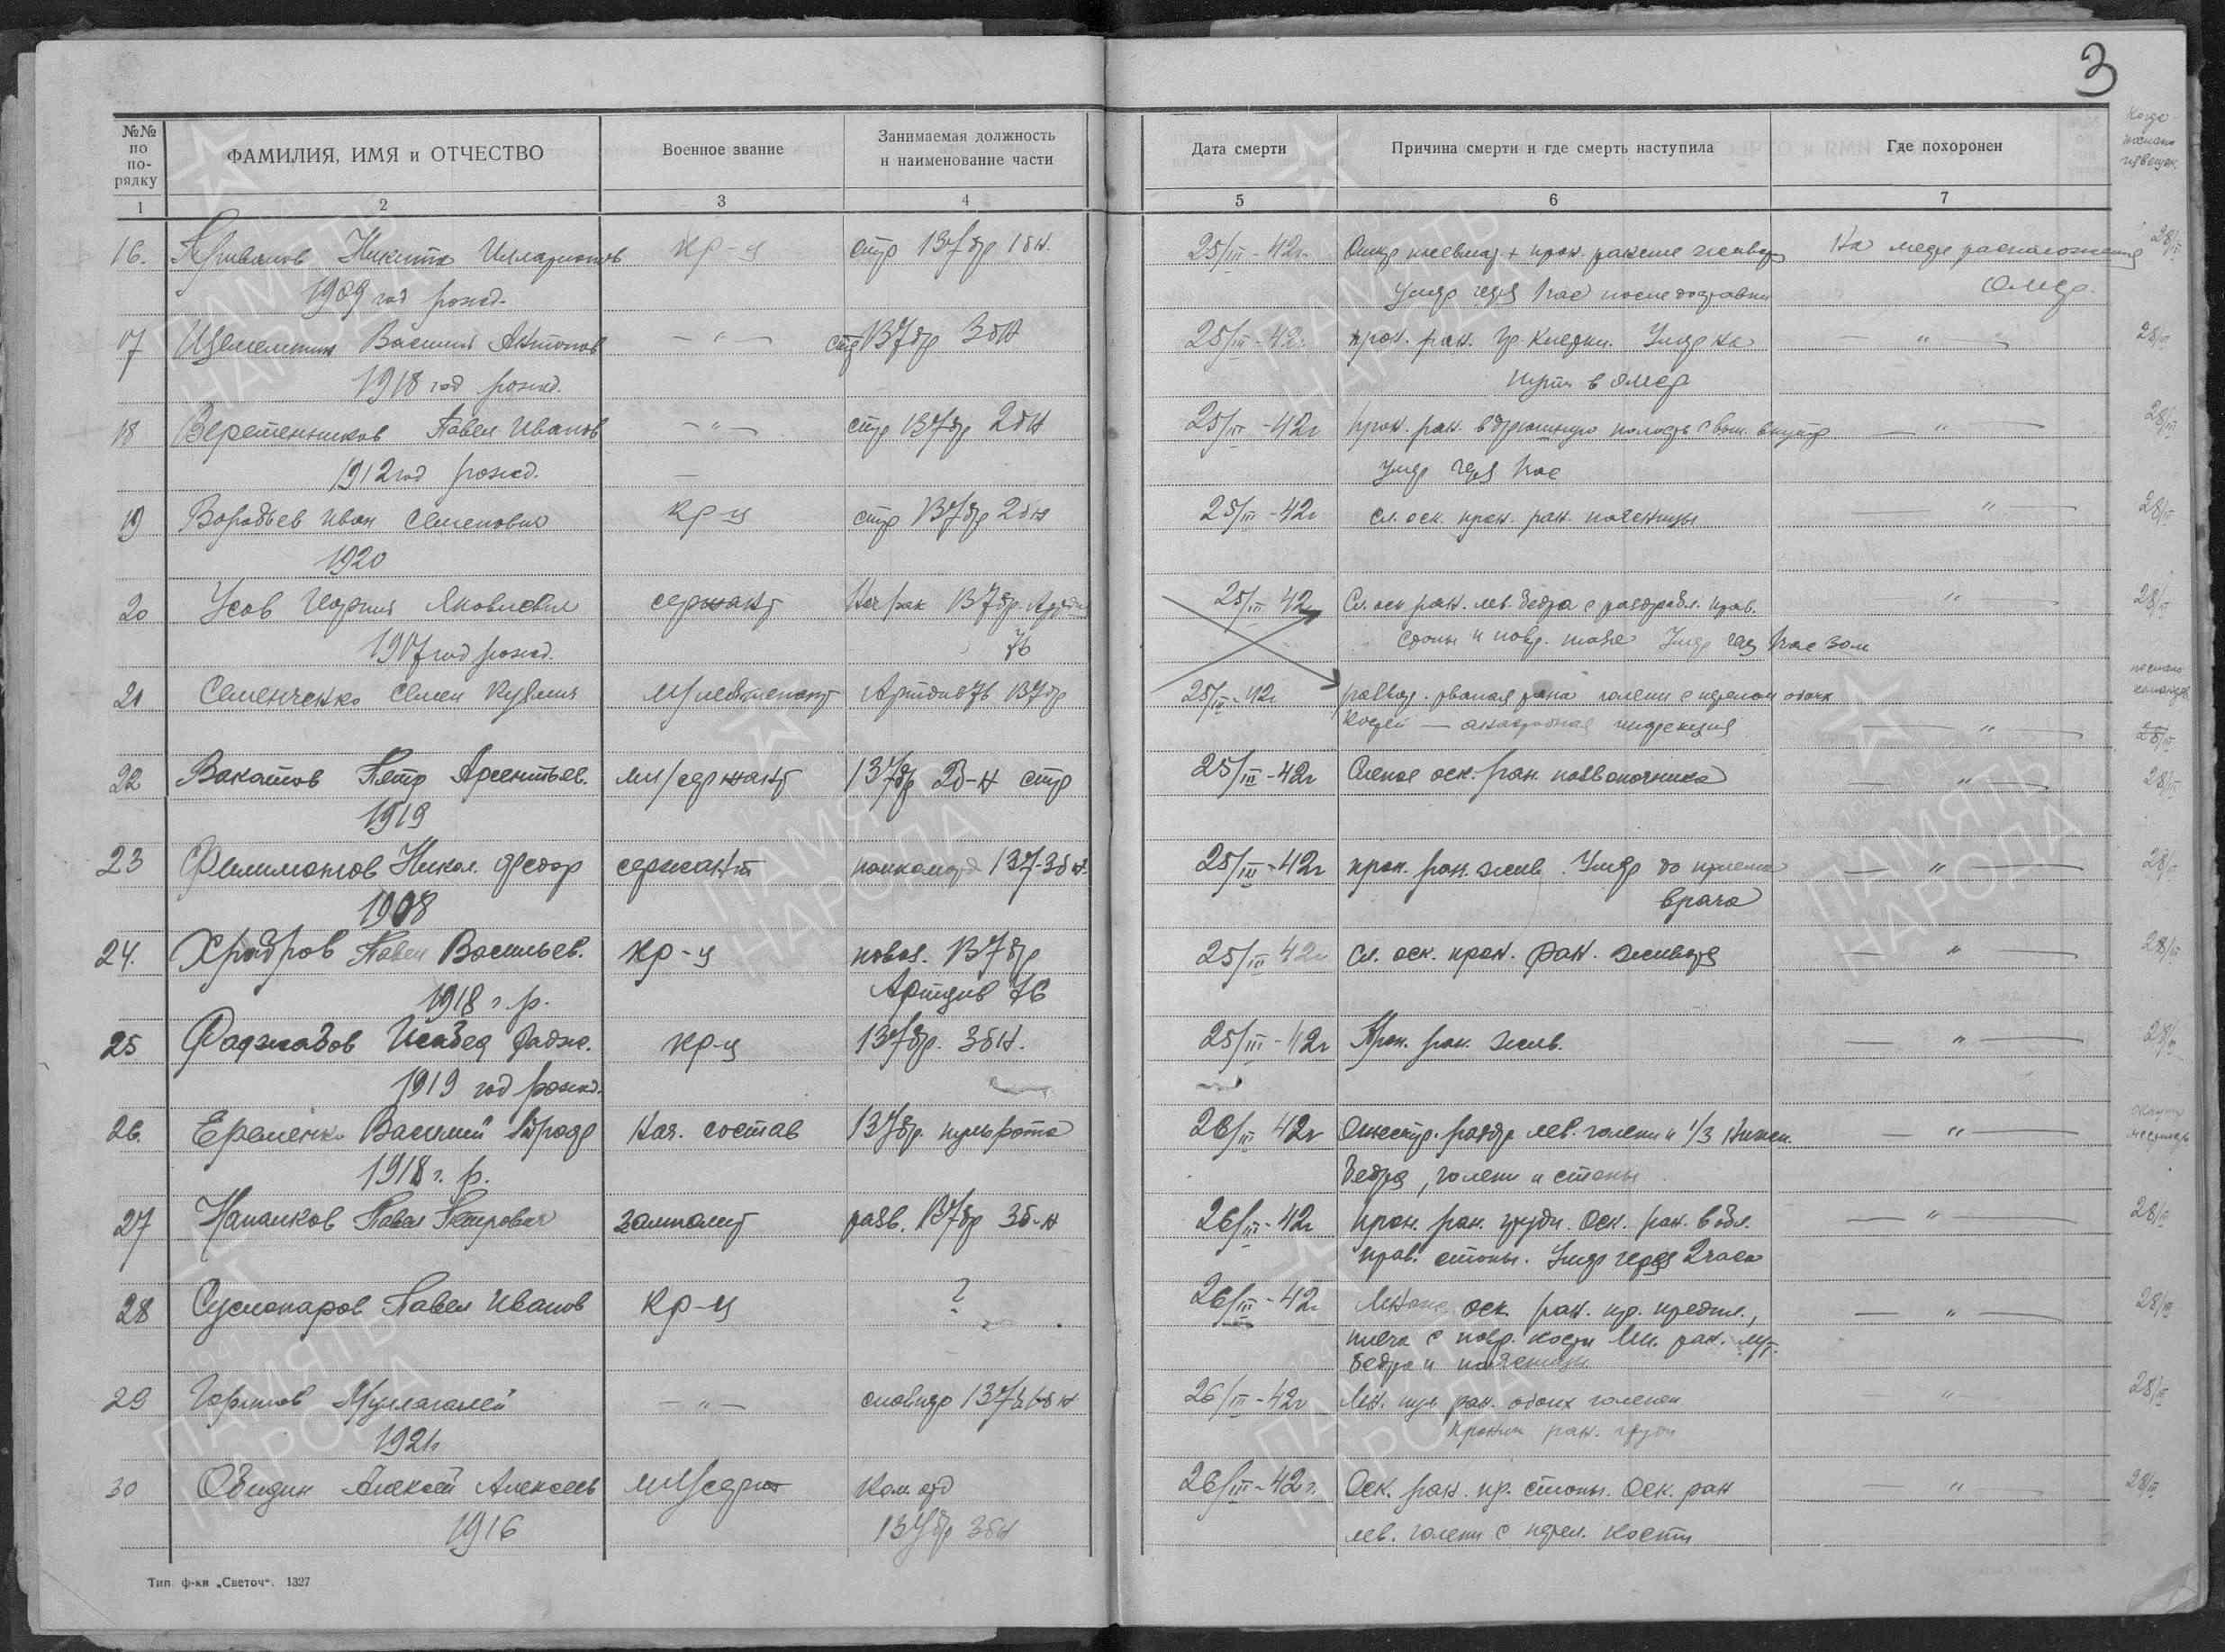 3
№№ по по-рядку
ФАМИЛИЯ, ИМЯ и ОТЧЕСТВО
Военное звание
Занимаемая должность и наименование части
Дата смерти
Причина смерти и где смерть наступила
Где похоронен
Когда послано извещен.
1 2 3 4 5 6 7
16. Никита Илларионов кр-ц стр 137 бр 1 бн. 25/III-42г. прон. ранение живота На месте расположения 28/III
1909 год рожд. Умер через 1 час после доставки Омедр.
17 Василий Антонов —"— стр 137 бр 3 бн 25/III-42г. прон. ран. гр. клетки. Умер на —"— 28/III
1918 год рожд. пути в омедр
18 Веретенников Павел Иванов —"— стр 137 бр 2 бн 25/III-42г прон. ран. в брюшную полость с вып. внутр —"— 28/III
1912 год рожд. Умер через 1 час
19 Воробьев Иван Семенович кр-ц стр 137 бр 2 бн 25/III-42г сл. оск. прон. ран. поясницы —"— 28/III
1920
20 Усов Яковлевич сержант 137 бр. 25/III 42г Сл. оск ран. лев. бедра с раздробл. прав. —"— 28/III
1907 год рожд. 76 стопы и повр. таза Умер через 1 час 30 м
21 Семенченко Семен м/лейтенант Артдив 76 137 бр 25/III-42г рваная рана голени с перелом обоих
костей — анаэробная инфекция —"— 28/III
22 Вакатов Петр Арсентьев. мл/сержант 137 бр 2 б-н стр 25/III-42г Слепое оск. ран. позвоночника —"— 28/III
1919
23 Филимонов Никол. Федор сержант помкомвзв 137-3 бн. 25/III-42г прон. ран. жив. Умер до приема —"— 28/III
1908 врача
24. Павел Васильев. кр-ц повоз. 137 бр 25/III 42г Сл. оск. прон. ран. живота —"— 28/III
1918 г. р. Артдив 76
25 кр-ц 137 бр. 3 бн. 25/III-42г Прон. ран. жив. —"— 28/III
1919 год рожд.
26. Еременко Василий нач. состав 137 бр. пульрота 26/III 42г лев. голени и 1/3 нижн. —"—
1918 г. р. бедра, голени и стопы
27 Павел Петрович замполит разв. 137 бр 3 б-н 26/III-42г прон. ран. груди. Оск. ран. в обл. —"— 28/III
прав. стопы. Умер через 2 часа
28 Суслопаров Павел Иванов кр-ц ? 26/III-42г оск. ран. пр. предпл., —"— 28/III
плеча с повр. кости Мн. ран.
бедра и поясницы
29 Гарипов Муллагалей —"— 26/III-42г Мн. пул ран. обоих голеней —"— 28/III
1921г ран. груди
30 Обидин Алексей Алексеев мл/серж Ком отд 26/III-42г. Оск. ран. пр. стопы. Оск. ран —"— 28/III
1916 137 бр 3 бн лев. голени с перел. кости
Тип ф-ки „Светоч". 1327
ПАМЯТЬ НАРОДА